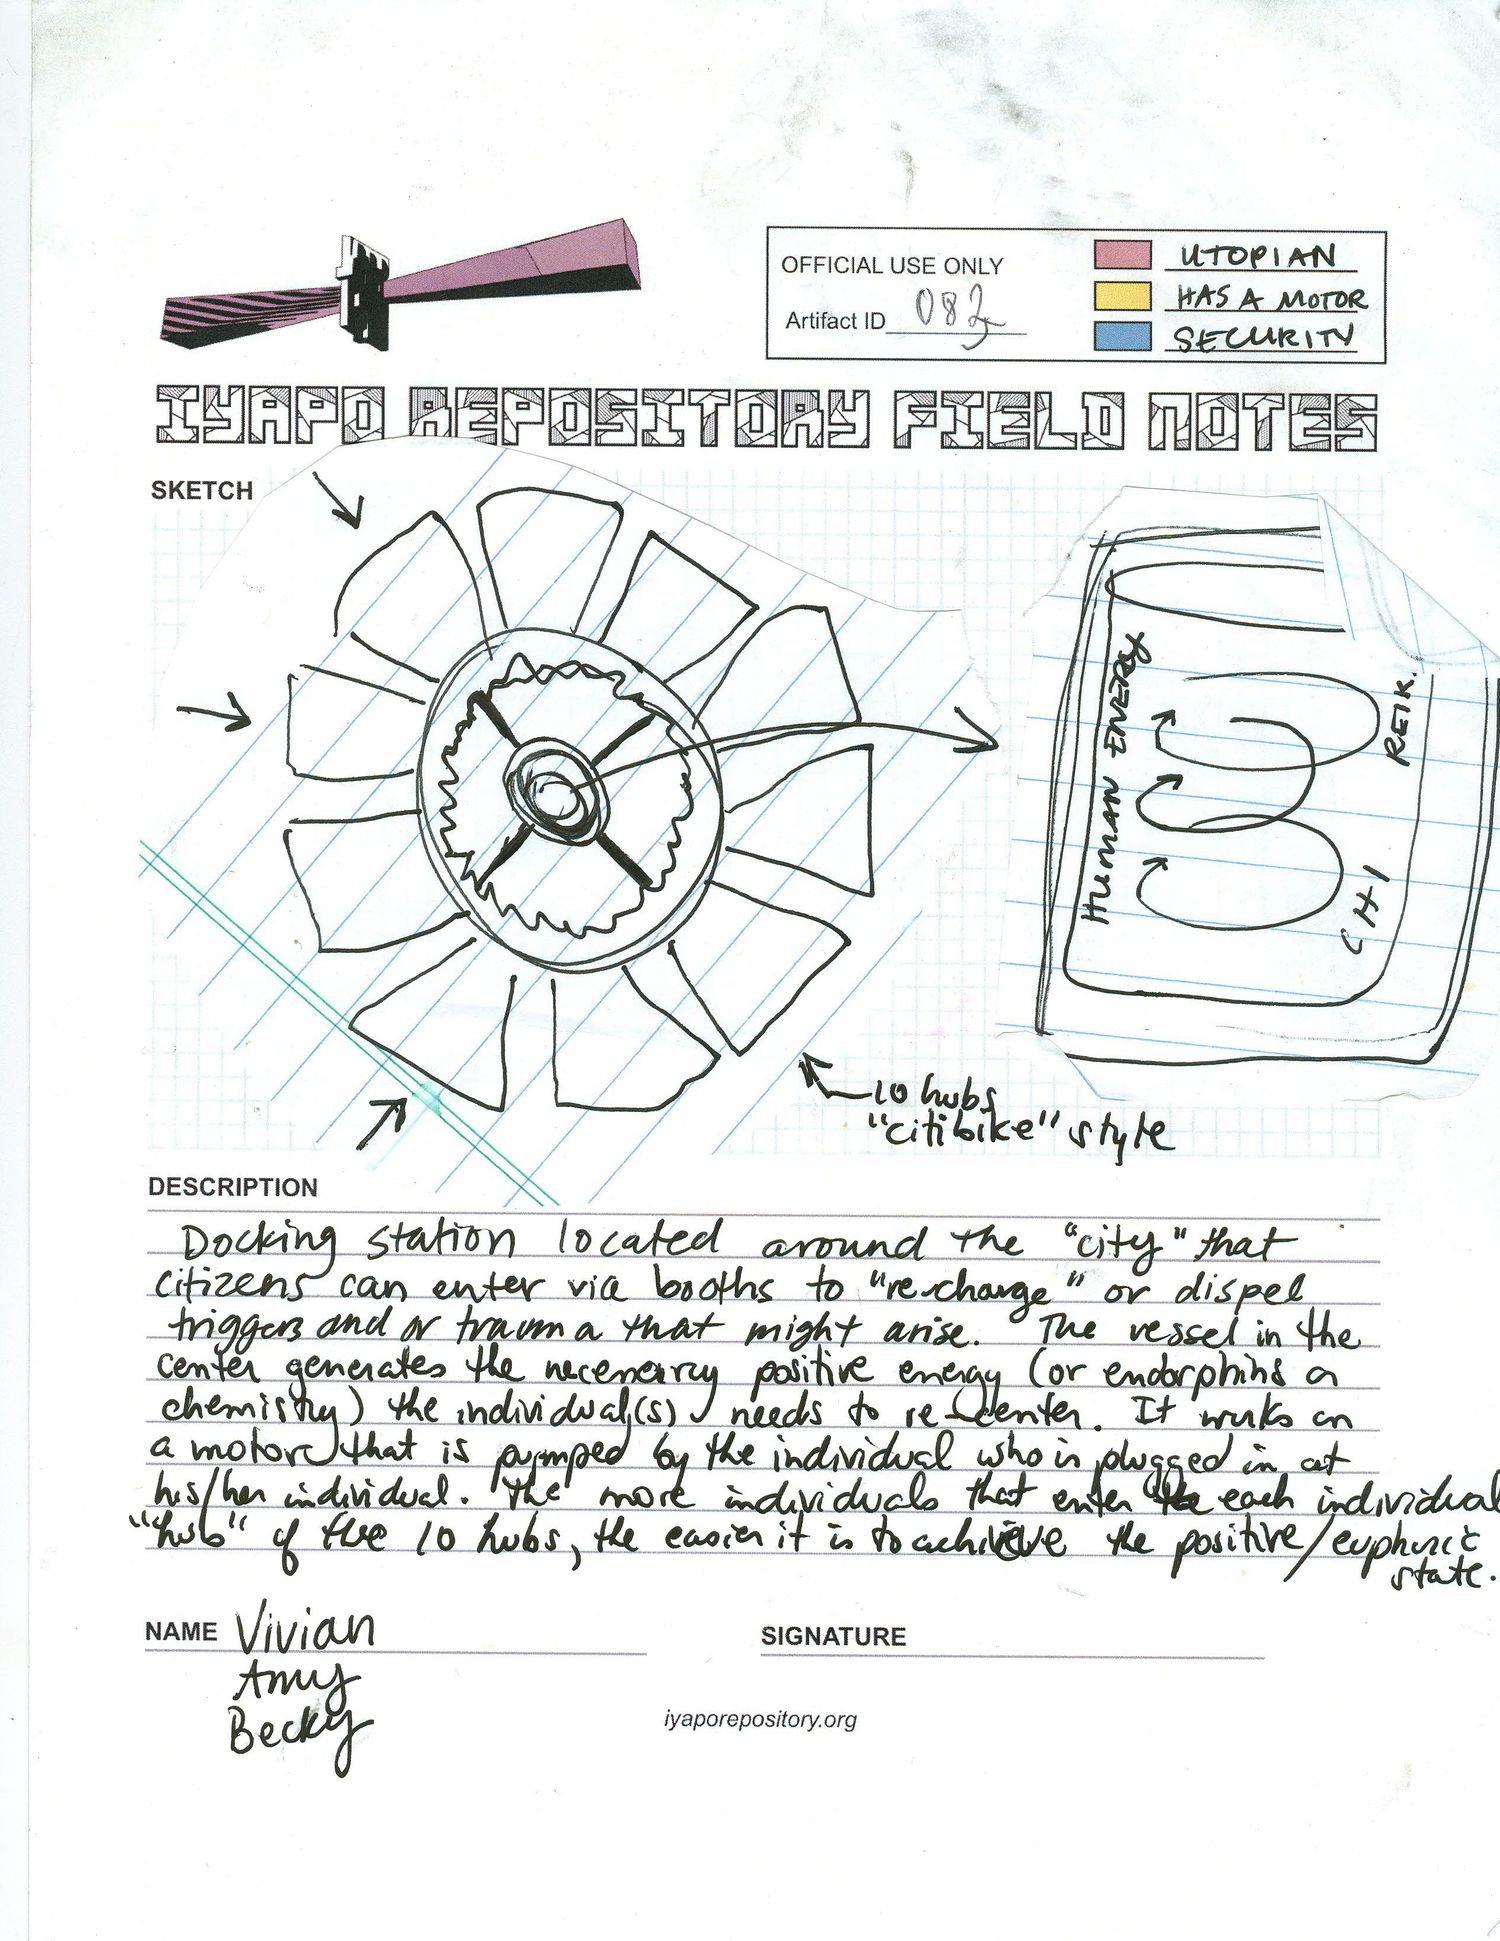 OFFICIAL USE ONLY
Artifact ID 082
UTOPIAN
HAS A MOTOR
SECURITY
IYAPO REPOSITORY FIELD NOTES
SKETCH
HUMAN ENERGY
REIK.
CHI
10 hubs
"citibike" style
DESCRIPTION
Docking station located around the "city" that
citizens can enter via booths to "re-charge" or dispel
triggers and or trauma that might arise. The vessel in the
center generates the necenerry positive energy (or endorphins or
chemistry) the individual(s) needs to re-center. It works on
a motor that is pumped by the individual who is plugged in at
his/her individual. The more individuals that enter the each individual
"hub" of the 10 hubs, the easier it is to achieve the positive/euphoric
state.
NAME Vivian
Amy
Becky
SIGNATURE
iyaporepository.org